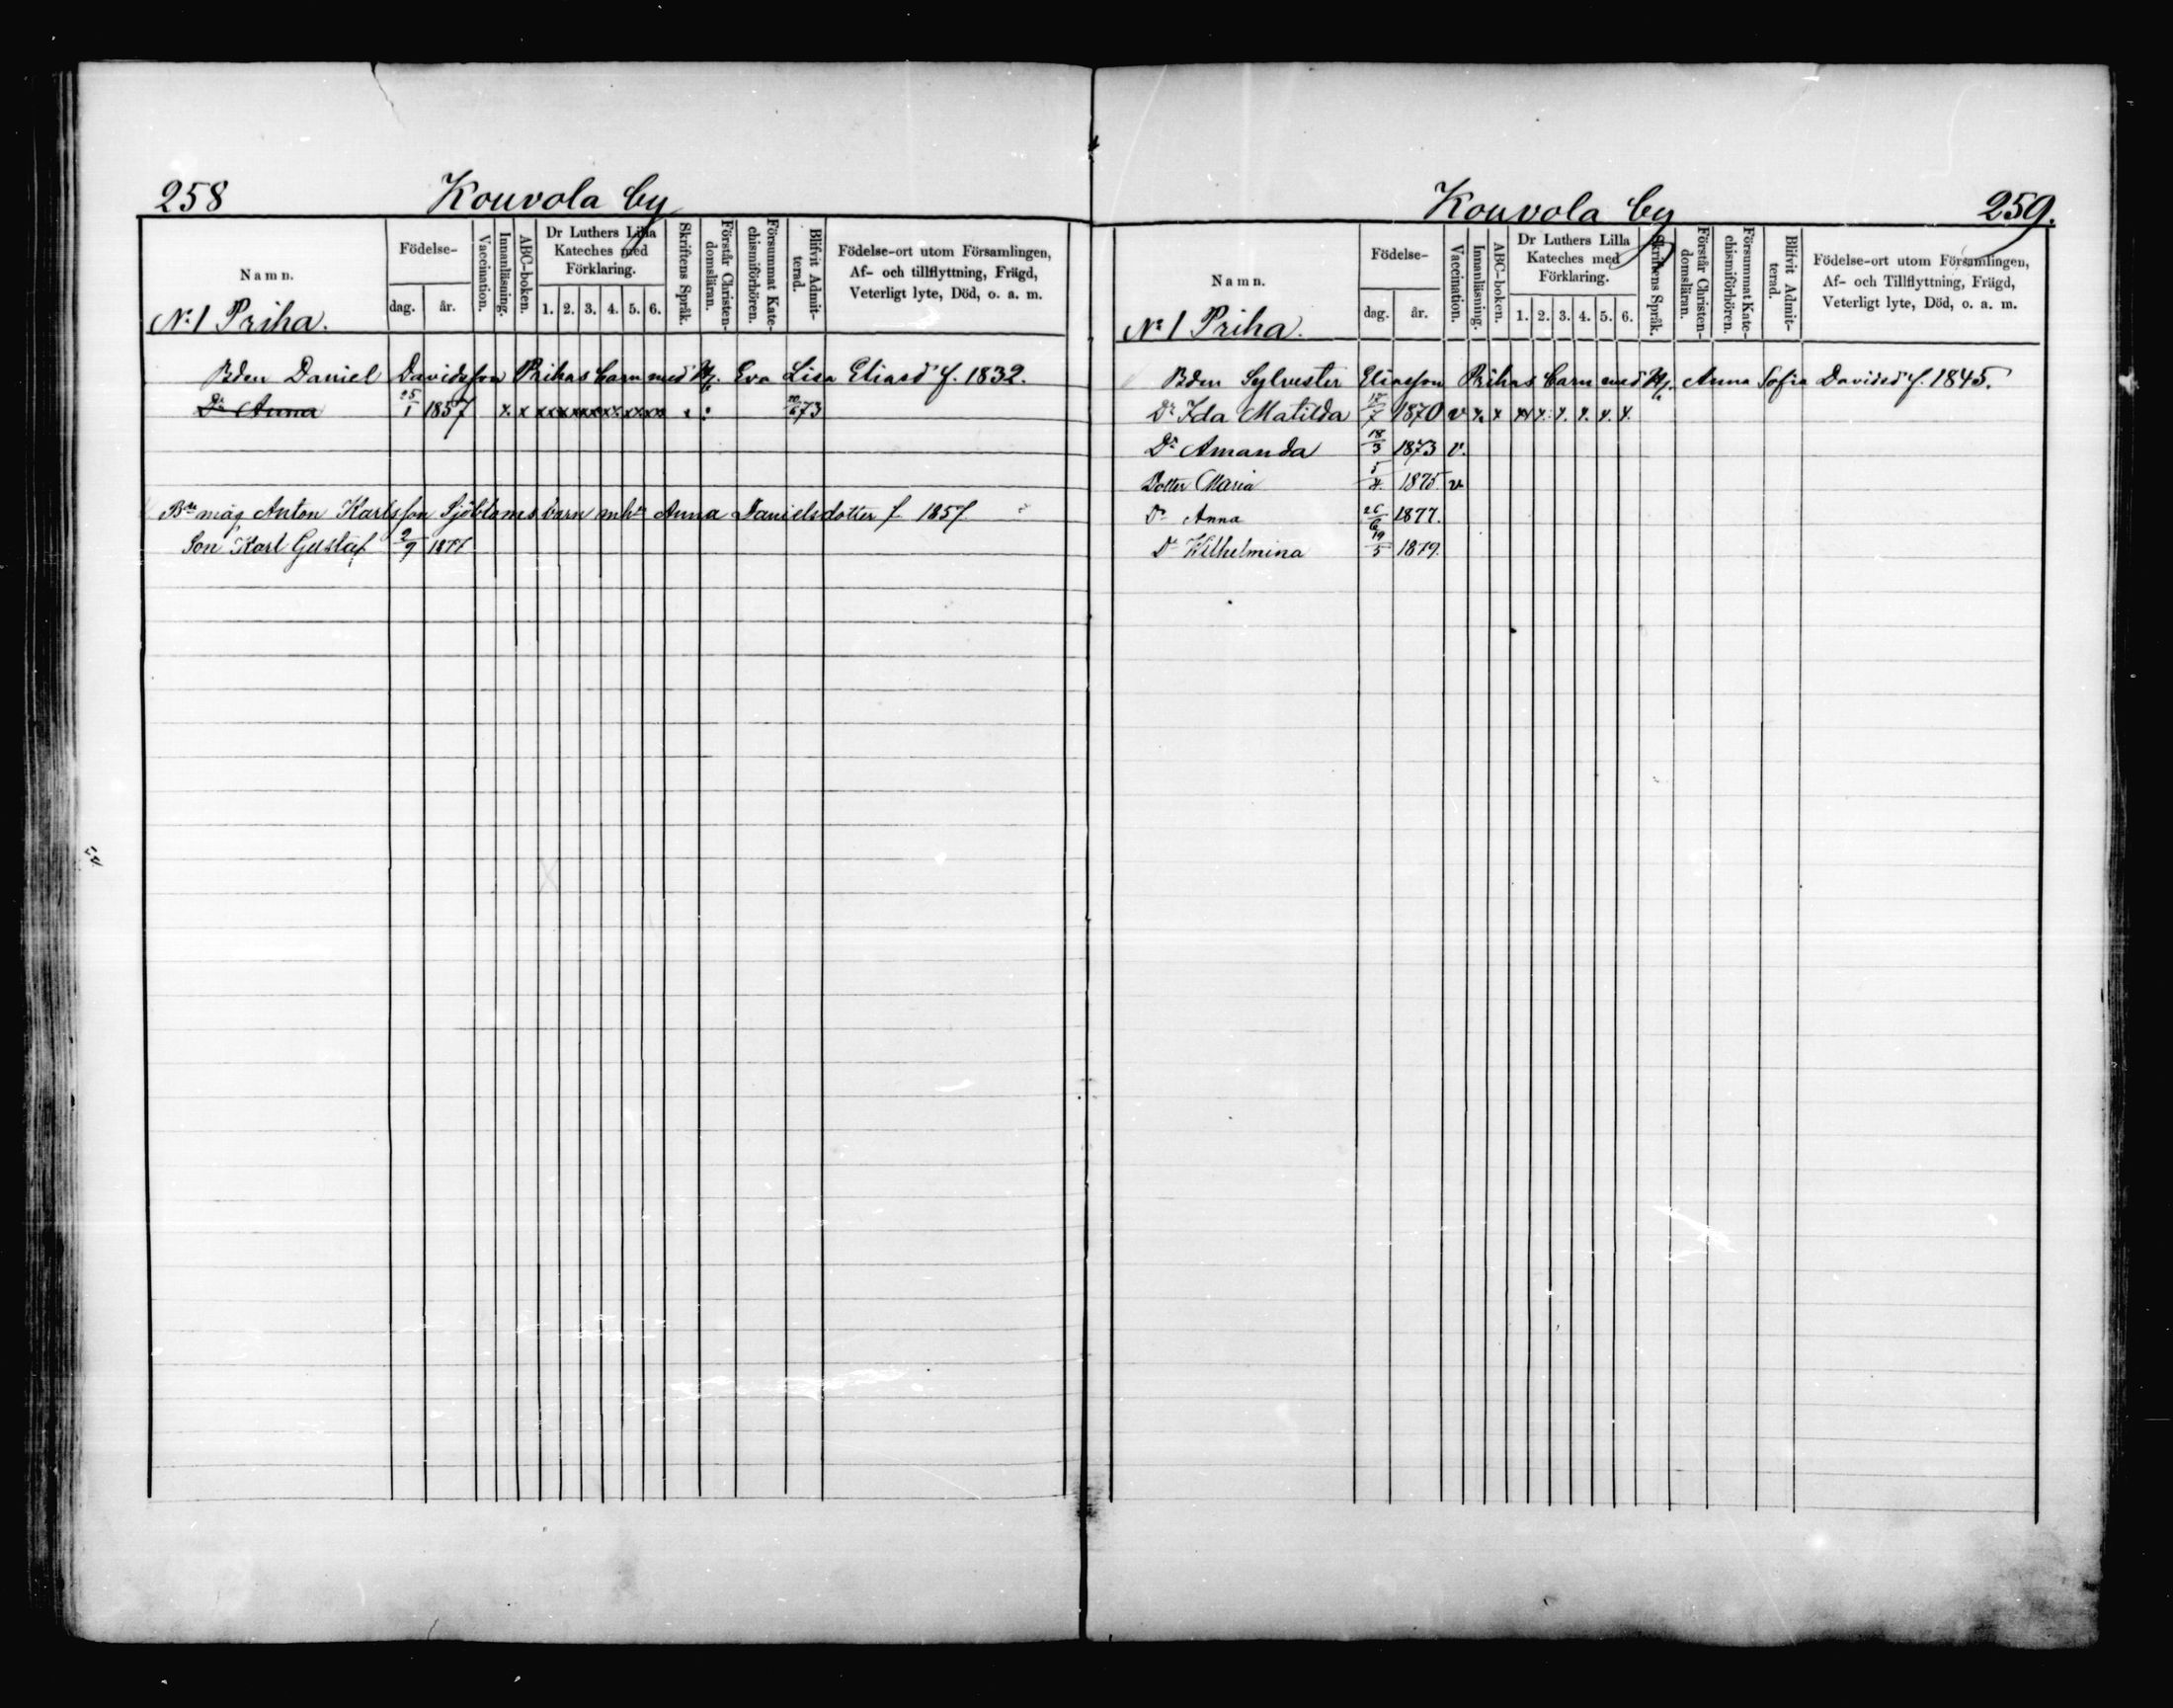 258 Kouvola by
Namn.
Födelse-
dag. år.
Vaccination.
Innanläsning.
ABC-boken.
Dr Luthers Lilla Kateches med Förklaring.
1. 2. 3. 4. 5. 6.
Skriftens Språk.
Förstår Christendomsläran.
Försummat Katechismiförhören.
Blifvit Admitterad.
Födelse-ort utom Församlingen, Af- och tillflyttning, Frägd, Veterligt lyte, Död, o. a. m.
No 1 Priha.
Bden Daniel Davidsson Prihas barn med Eva Lisa Eliasd f. 1832.
Dr Anna 25/1 1857 x x x x x x x x x x x x x 73
Bde måg Anton Karlsson Sjöbloms barn m hu Anna Danielsdotter f 1857
Son Karl Gustaf 2/9 1877
Kouvola by 259.
Namn.
Födelse-
dag. år.
Vaccination.
Innanläsning.
ABC-boken.
Dr Luthers Lilla Kateches med Förklaring.
1. 2. 3. 4. 5. 6.
Skriftens Språk.
Förstår Christendomsläran.
Försummat Katechismiförhören.
Blifvit Admitterad.
Födelse-ort utom Församlingen, Af- och Tillflyttning, Frägd, Veterligt lyte, Död, o. a. m.
No 1 Priha.
Bden Sylvester Eliasson Prihas barn med Anna Sofia Davidsd f. 1845.
Dr Ida Matilda 17/7 1870 v x x xx x. x. x. x. x.
Dr Amanda 18/3 1873 v.
Dotter Maria 5/4 1875 v
Dr Anna 26/6 1877.
Dr Wilhelmina 19/5 1879.